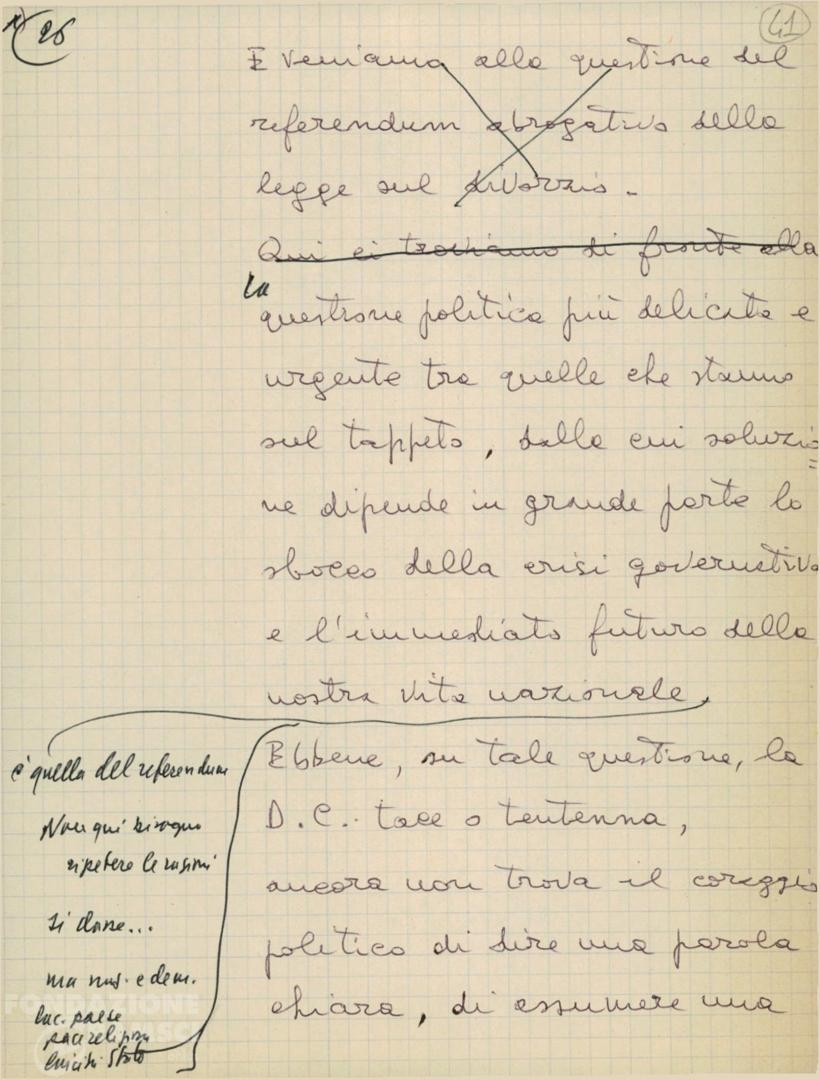 26
41
E veniamo alla questione del
referendum abrogativo della
legge sul divorzio -
Qui ci troviamo di fronte alla
La
questione politica più delicata e
urgente tra quelle che stanno
sul tappeto, dalla cui soluzio=
ne dipende in grande parte lo
sbocco della crisi governativa
e l'immediato futuro della
nostra vita nazionale,
è quella del referendum
Non qui bisogno
ripetere le ragioni
si dane...
ma nas. e dem.
luc. paese
pace religiosa
laicità Stato
Ebbene, su tale questione, la
D.C. tace o tentenna,
ancora non trova il coraggio
politico di dire una parola
chiara, di assumere una
FONDAZIONE